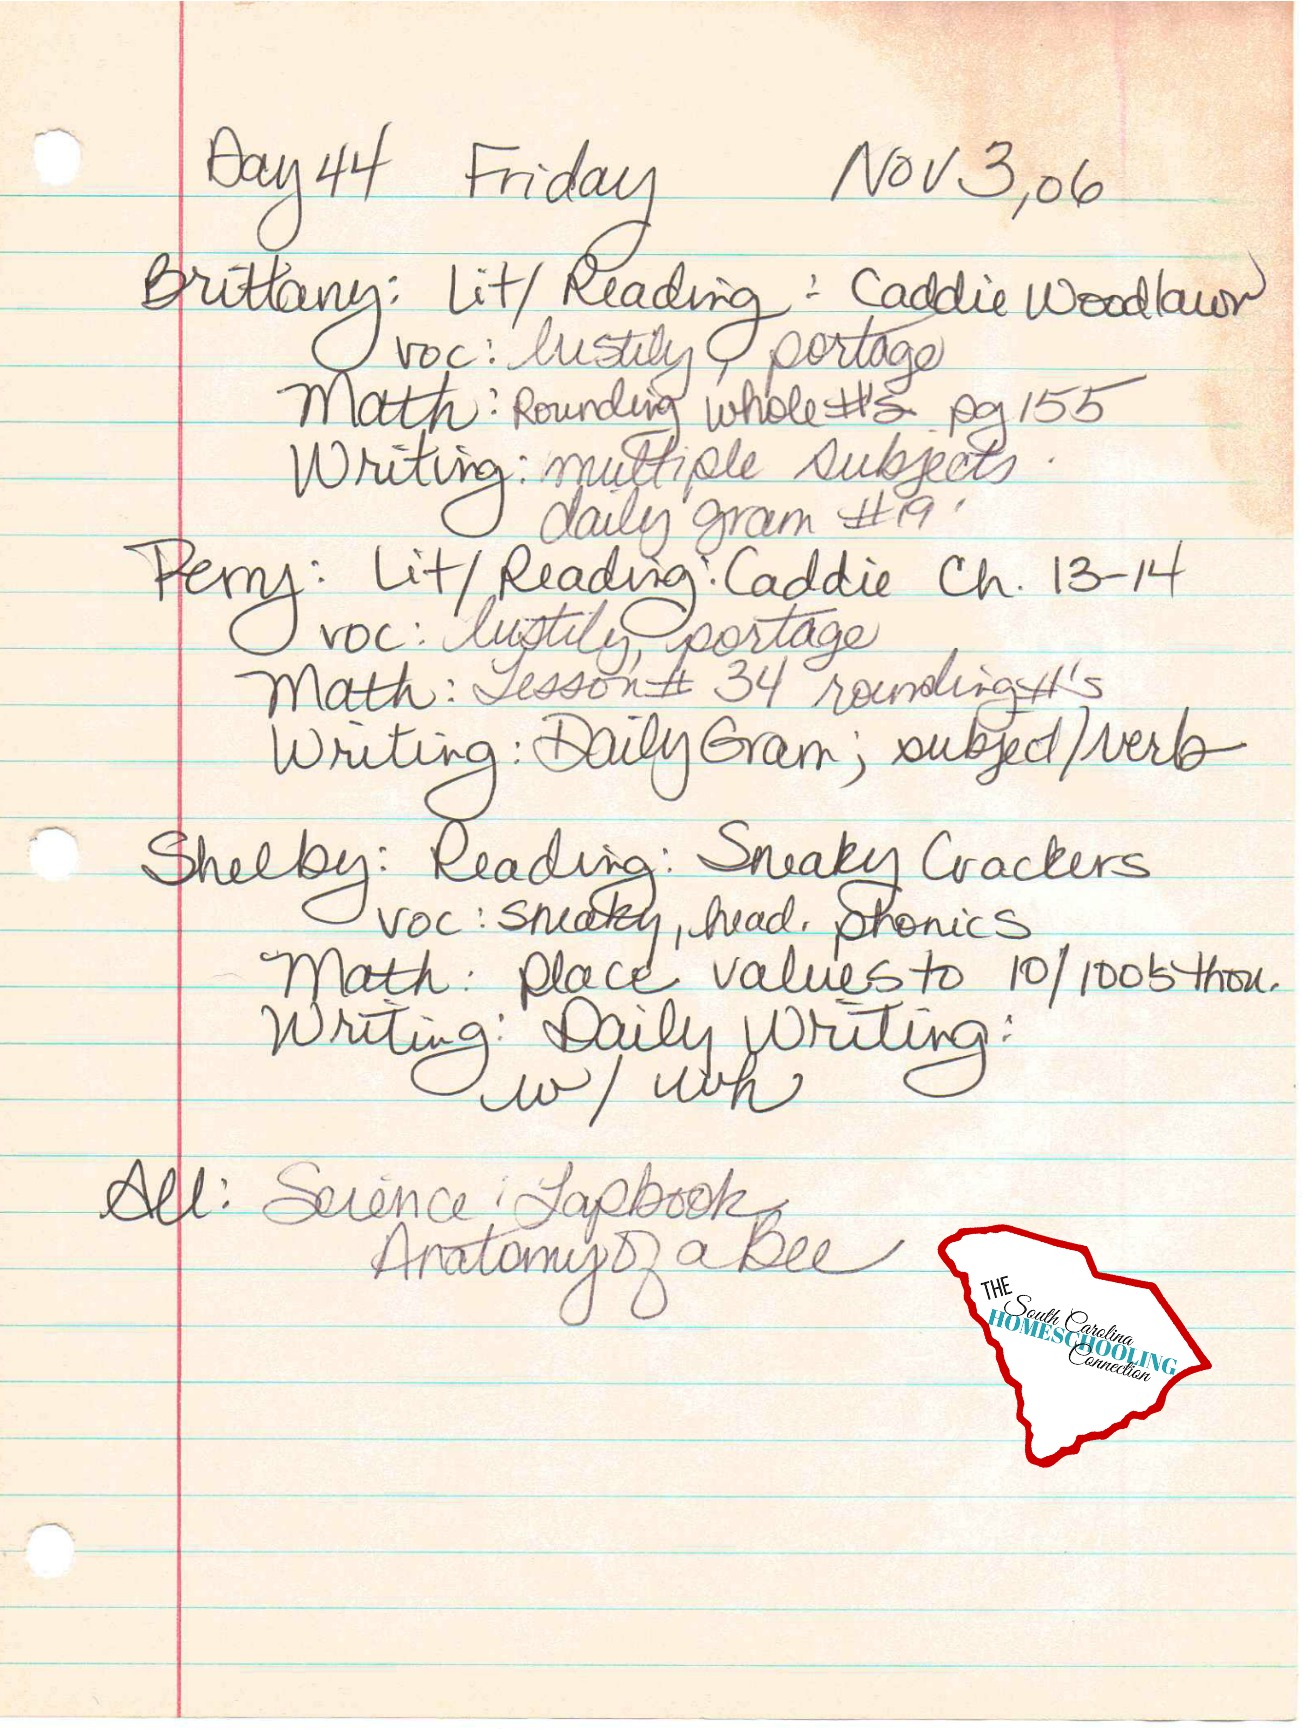 Day 44 Friday Nov 3, 06
Brittany: Lit/Reading: Caddie Woodlawn
voc: lustily, portage
Math: Rounding whole #'s pg 155
Writing: multiple subjects.
daily gram #19
Perry: Lit/Reading: Caddie Ch. 13-14
voc: lustily, portage
Math: Lesson # 34 rounding #'s
Writing: Daily Gram; subject/verb
Shelby: Reading: Sneaky Crackers
voc: sneaky, head. phonics
Math: place values to 10/100's thou.
Writing: Daily Writing:
w/ wh
All: Science: Lapbook
Anatomy of a Bee
THE
South Carolina
HOMESCHOOLING
Connection